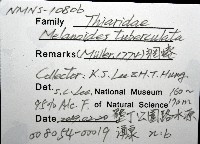 NMNS-10806
Family Thiaridae
Melanoides tuberculata
Remarks (Müller, 1774)
Collector: K.S. Lee & H.T. Hung.
Det. S.C. Lee, National Museum 160~
95% Alc. F. of Natural Science 170m
Date. 墾丁公園
008054-00019 n:6